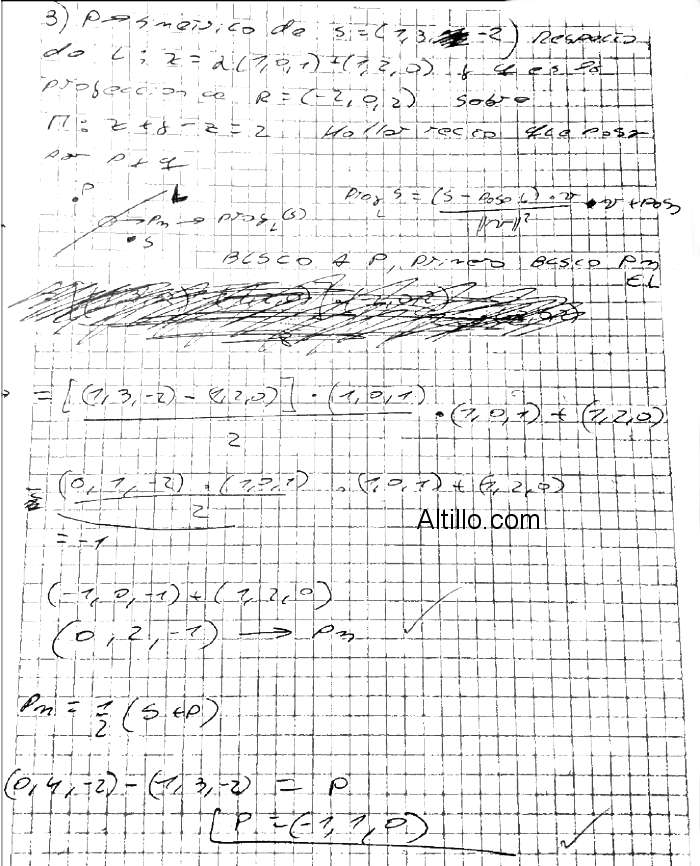 3) P simétrico de S=(1,3,-2) Respecto
de L: x=α(1,0,1)+(1,2,0) y q es la
proyeccion de R=(-2,0,2) sobre
Π: x+y-z=2 Hallar recta que pasa
por P y q
P
L
Pm → proy_L(s)
s
Proy_L s = (S - Paso L) · v / ||v||² · v + Paso
BUSCO A P, primero BUSCO Pm
∈ L
= [(1,3,-2) - (1,2,0)] · (1,0,1) / 2 · (1,0,1) + (1,2,0)
= (0,1,-2) · (1,0,1) / 2 · (1,0,1) + (1,2,0)
= -1
Altillo.com
(-1,0,-1) + (1,2,0)
(0,2,-1) → Pm ✓
Pm = 1/2 (S+P)
(0,4,-2) - (1,3,-2) = P
P = (-1,1,0) ✓